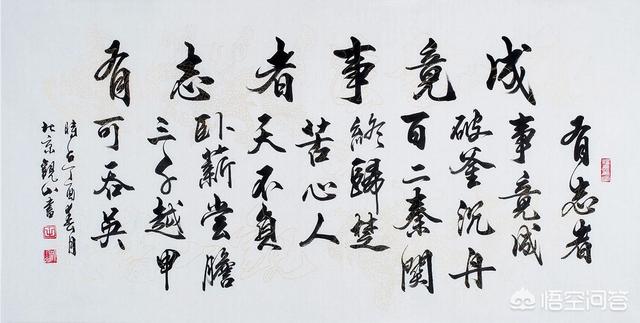 有志者事竟成
有志者
事竟成
破釜沉舟
百二秦關
終歸楚
苦心人
天不負
卧薪嘗膽
三千越甲
可吞吳
時在丁酉春月
北京觀山書
悟空问答